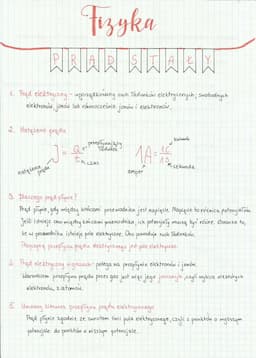 Fizyka
PRĄD STAŁY
1. Prąd elektryczny - uporządkowany ruch ładunków elektrycznych, swobodnych
elektronów, jonów lub równocześnie jonów i elektronów.
2. Natężenie prądu
J = Q / t
natężenie prądu
przepływający ładunek
czas
1A = 1C / 1s
amper
kulomb
sekunda
3. Dlaczego prąd płynie?
Prąd płynie, gdy między końcami przewodnika jest napięcie. Napięcie to różnica potencjałów.
Jeśli istnieje ono między końcami przewodnika, ich potencjały muszą być różne. Oznacza to,
że w przewodniku istnieje pole elektryczne. Ono powoduje ruch ładunków.
Przyczyną przepływu prądu elektrycznego jest pole elektryczne.
4. Prąd elektryczny w gazach - polega na przepływie elektronów i jonów.
Warunkiem przepływu prądu przez gaz jest więc jego jonizacja, czyli wybicie niektórych
elektronów z atomów.
5. Umowny kierunek przepływu prądu elektrycznego
Prąd płynie zgodnie ze zwrotem linii pola elektrycznego, czyli z punktów o wyższym
potencjale do punktów o niższym potencjale.